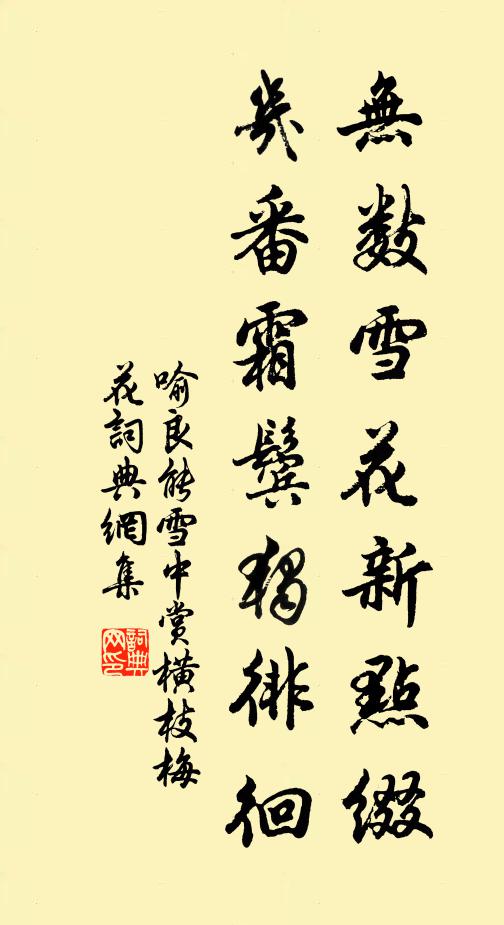 無數雪花新點綴
幾番霜鬢獨徘徊
喻良能雪中賞橫枝梅
花詞典網集
詞典網印